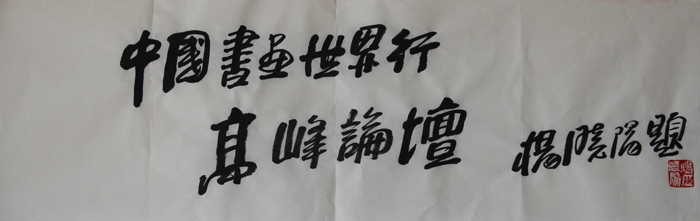 中國書画世界行
高峰論壇
楊曉陽題